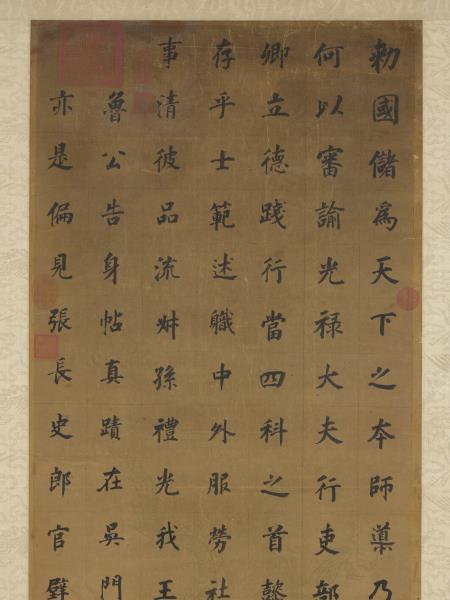 勑國儲爲天下之本師導乃
何以審諭光祿大夫行吏部
卿立德踐行當四科之首懿
存乎士範述職中外服勞社
事清彼品流叔孫禮光我王
魯公告身帖真蹟在吳門
亦是偏見張長史郎官壁